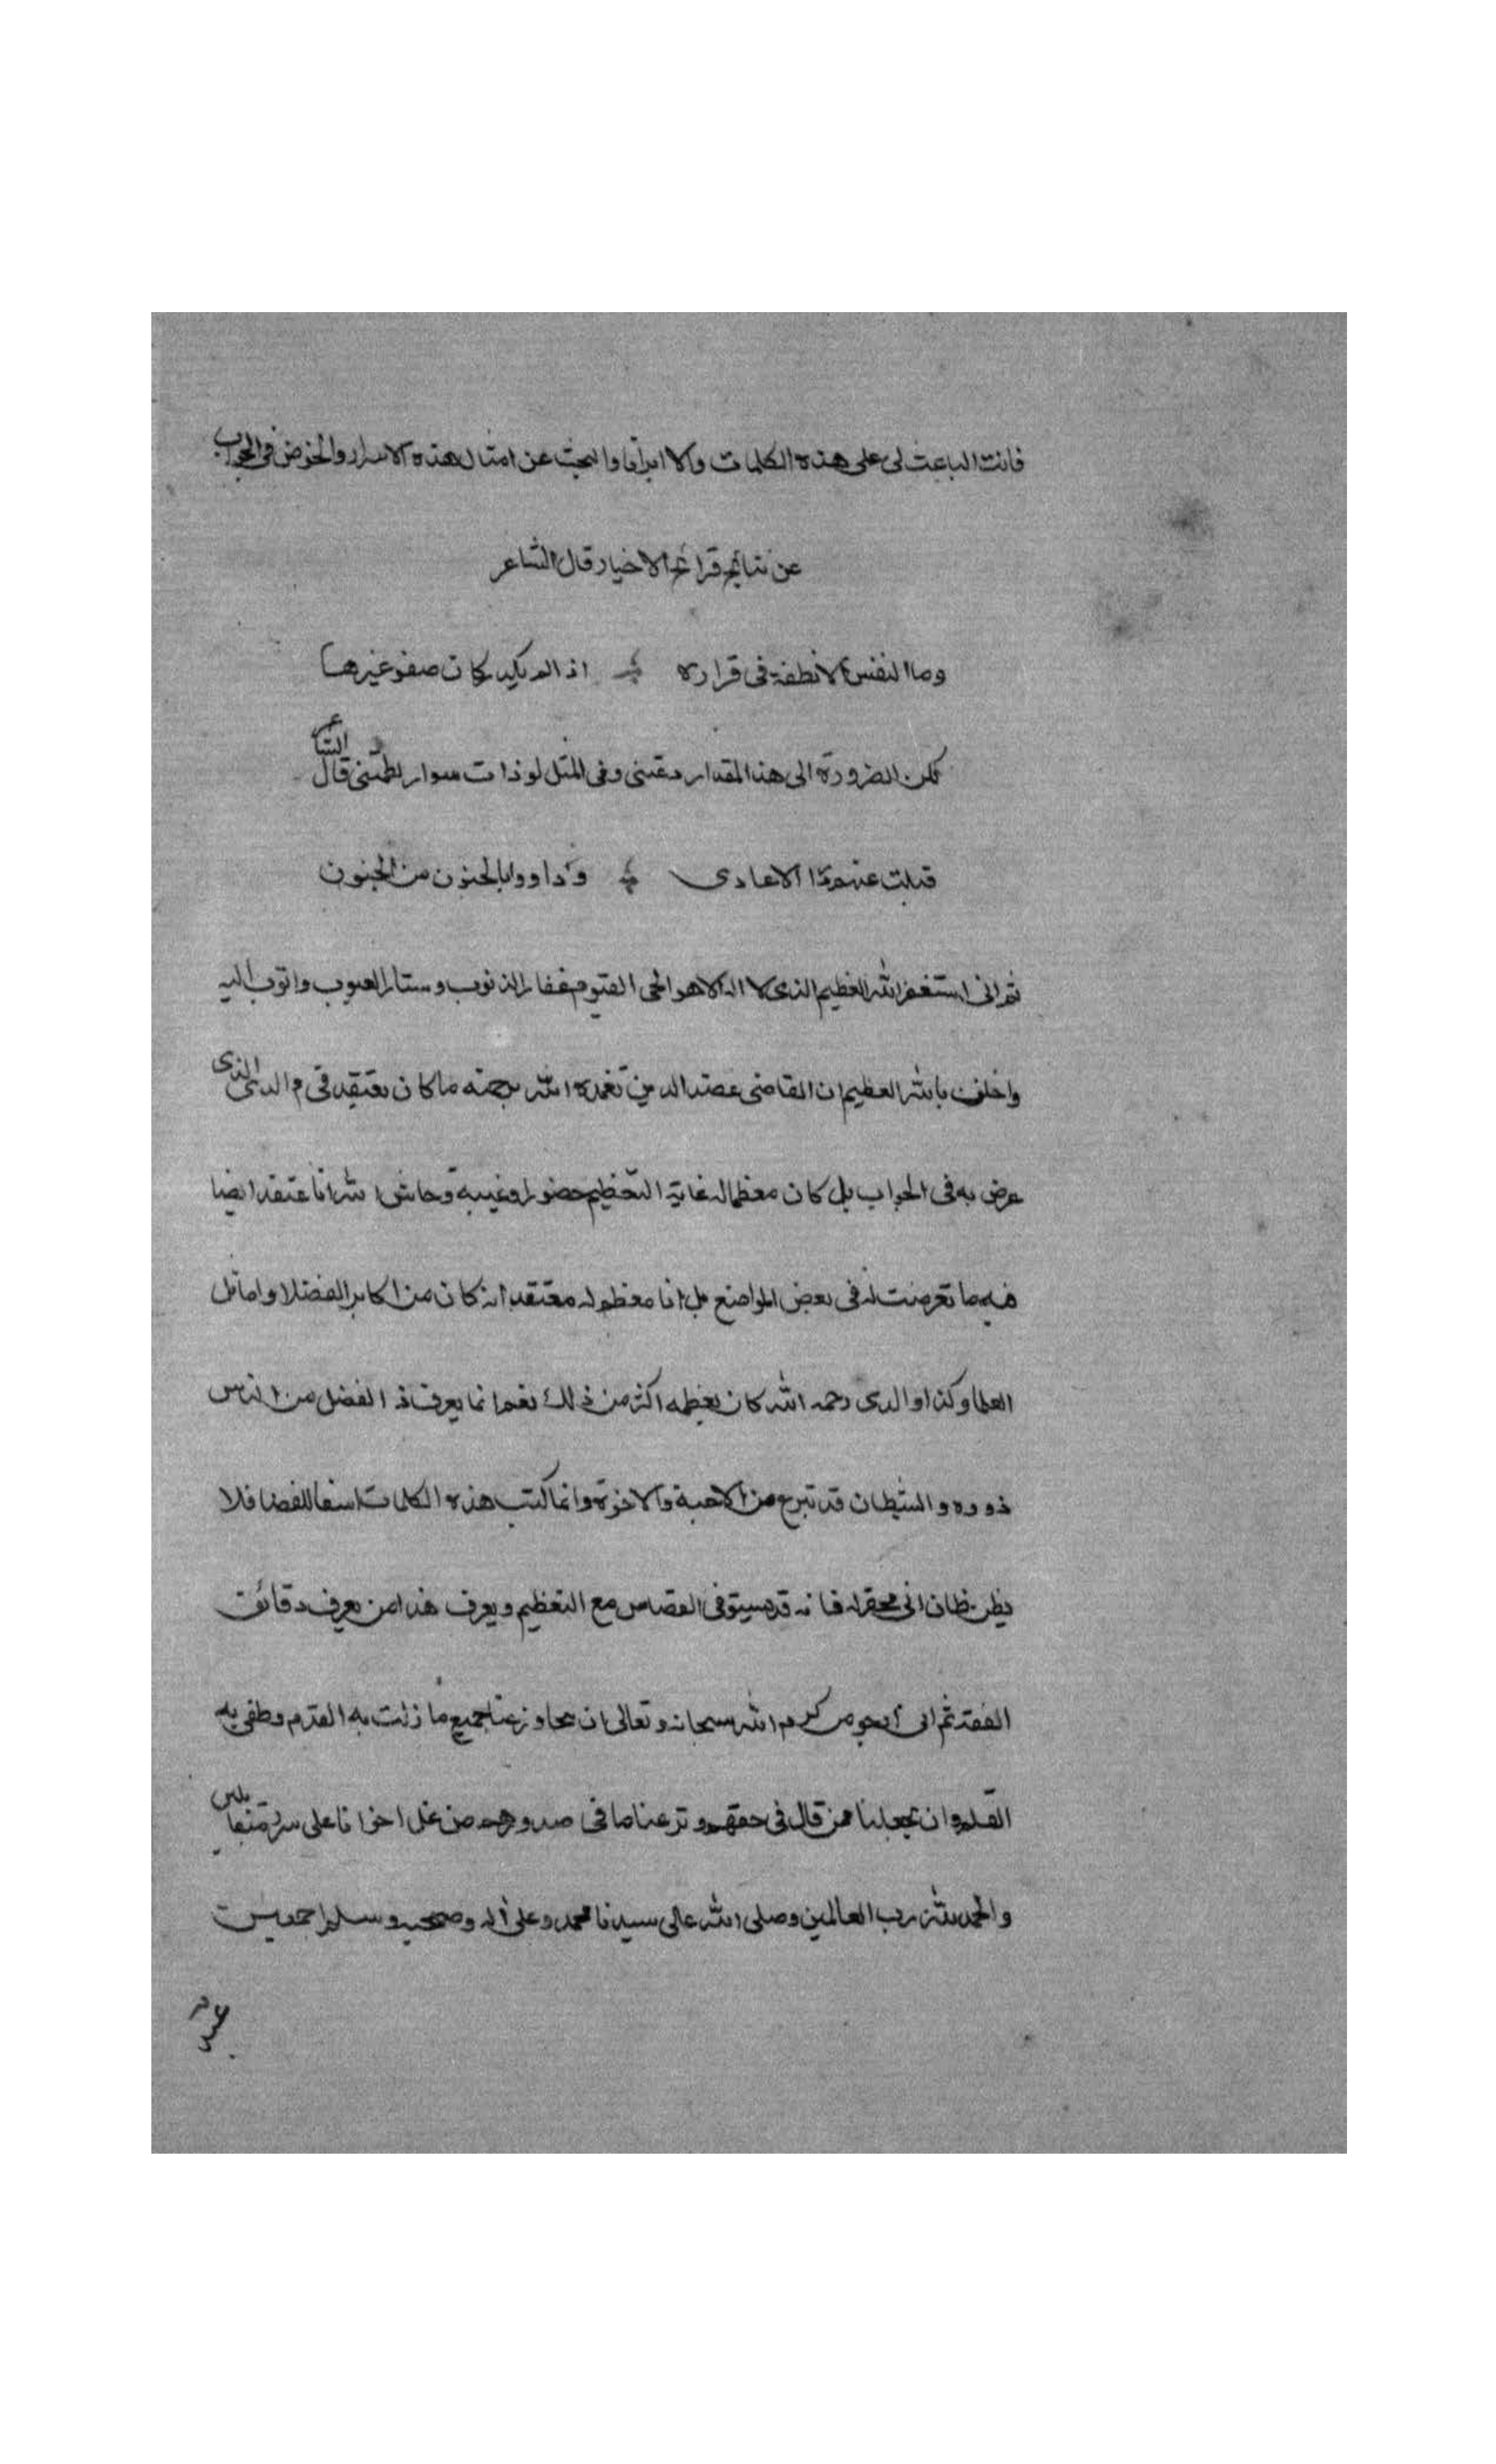 فانت الباعث لى على هذه الكلمات والا ابدأنا والبحث عن امثال هذه الاسرار والخوض فى الجواب
عن نتائج قرائح الاخيار قال الشاعر
وما النفس الا نطفة فى قراره اذا لم يكدر كان صفو غيرها
لكن الضرورة الى هذا المقدار دعتنى وفى المثل لو ذات سوار لطمتنى قال الشاعر
عنهم الاعادى وداووا بالجنون من الجنون
ثم انى استغفر الله العظيم الذى لا اله الا هو الحى القيوم غفار الذنوب وستار العيوب واتوب اليه
واحلف بالله العظيم ان القاضى عضد الدين تغمده الله برحمته ما كان يعتقد فى والدى الذى
عرض به فى الجواب بل كان معظما له غاية التعظيم حضورا وغيبة وحاش الله انا عتقد ايضا
فيه ما تعرضت له فى بعض المواضع بل انا معظم له معتقد انه كان من اكابر الفضلا واماثل
العلما وكذا والدى رحمه الله كان يعظمه اكثر من ذلك نعم انما يعرف ذا الفضل من الناس
ذووه والشيطان قد من الاحبة والاخوة وانما كتبت هذه الكلمات فلا
يظن ظان انى محقر له فانه قد يستوفى القصاص مع التعظيم ويعرف هذا من يعرف دقائق
الفقه ثم انى ارجو من كرم الله سبحانه وتعالى ان يتجاوز عنا جميع ما زلت به القدم وطغى به
القلم وان يجعلنا ممن قال فى حقهم ونزعنا ما فى صدورهم من غل اخوانا على سرر متقابلين
والحمد لله رب العالمين وصلى الله عالى سيدنا محمد وعلى اله وصحبه وسلم اجمعين